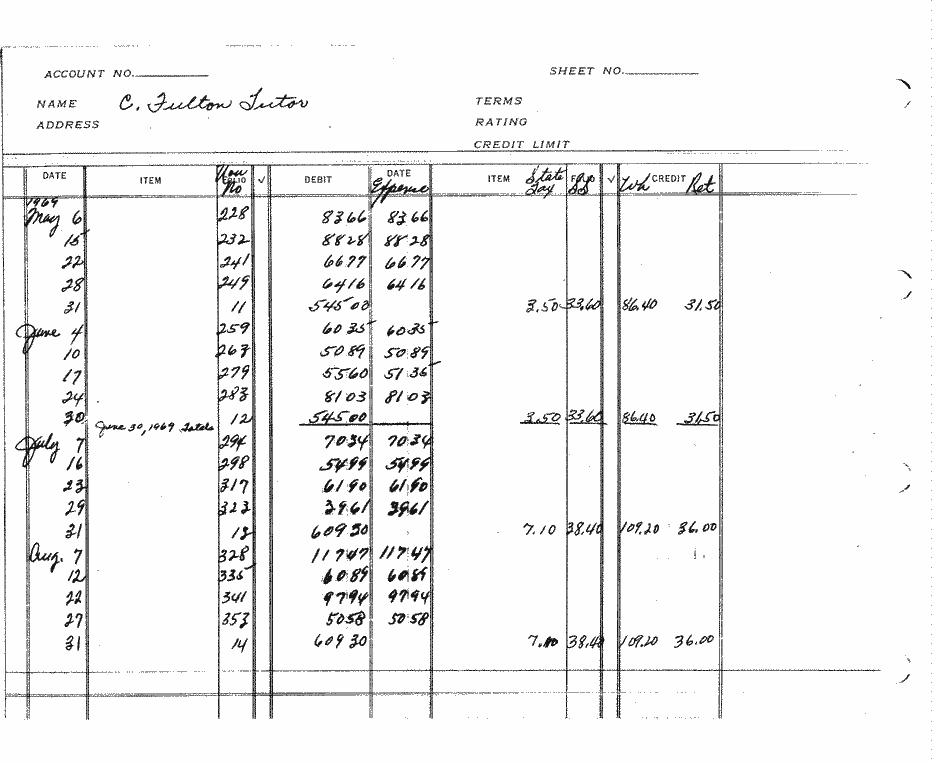 ACCOUNT NO. SHEET NO.
NAME C. Fulton Tutor TERMS
ADDRESS RATING
CREDIT LIMIT
DATE ITEM No ✓ DEBIT DATE Expense ITEM State Tax ✓ Wh CREDIT Ret
1969
May 6 228 83 66 83 66
15 232 88 28 88 28
22 241 66 77 66 77
28 249 64 16 64 16
31 11 545 00 3.50 33.60 86.40 31.50
June 4 259 60 35 60 35
10 263 50 89 50 89
17 279 55 60 51 35
24 283 81 03 81 03
30 June 30, 1969 Totals 12 545 00 3.50 33.60 86.40 31.50
July 7 294 70 34 70 34
16 298 54 99 54 99
23 317 61 90 61 90
29 323 39 61 39 61
31 13 609 30 7.10 38.40 109.20 36.00
Aug. 7 328 117 47 117 47
12 335 60 89 60 89
22 341 97 94 97 94
27 353 50 58 50 58
31 14 609 30 7.10 38.40 109.20 36.00